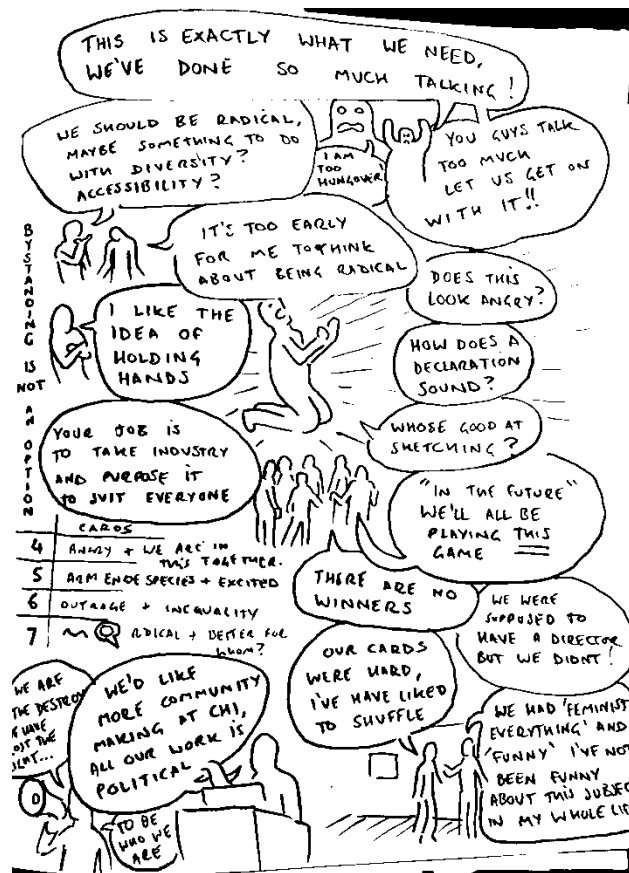 THIS IS EXACTLY WHAT WE NEED,
WE'VE DONE SO MUCH TALKING!
WE SHOULD BE RADICAL,
MAYBE SOMETHING TO DO
WITH DIVERSITY?
ACCESSIBILITY?
I AM
TOO
HUNGOVER!
YOU GUYS TALK
TOO MUCH
LET US GET ON
WITH IT!!
IT'S TOO EARLY
FOR ME TO THINK
ABOUT BEING RADICAL
BYSTANDING IS NOT AN OPTION
DOES THIS
LOOK ANGRY?
I LIKE THE
IDEA OF
HOLDING
HANDS
HOW DOES A
DECLARATION
SOUND?
YOUR JOB IS
TO TAKE INDUSTRY
AND PURPOSE IT
TO SUIT EVERYONE
WHOSE GOOD AT
SKETCHING?
"IN THE FUTURE"
WE'LL ALL BE
PLAYING THIS
GAME
CARDS
4 ANGRY + WE ARE IN
THIS TOGETHER.
5 SPECIES + EXCITED
6 OUTRAGE + INEQUALITY
7 RDICAL + BETTER FOR
WHOM?
THERE ARE NO
WINNERS
WE WERE
SUPPOSED TO
HAVE A DIRECTOR
BUT WE DIDNT!
OUR CARDS
WERE HARD,
I'VE HAVE LIKED
TO SHUFFLE
WE ARE
THE DESTROY
HAVE
THE
WE'D LIKE
MORE COMMUNITY
MAKING AT CHI,
ALL OUR WORK IS
POLITICAL
TO BE
WHO WE
ARE
WE HAD 'FEMINIST
EVERYTHING' AND
'FUNNY' I'VE NOT
BEEN FUNNY
ABOUT THIS SUBJEC
IN MY WHOLE LIF